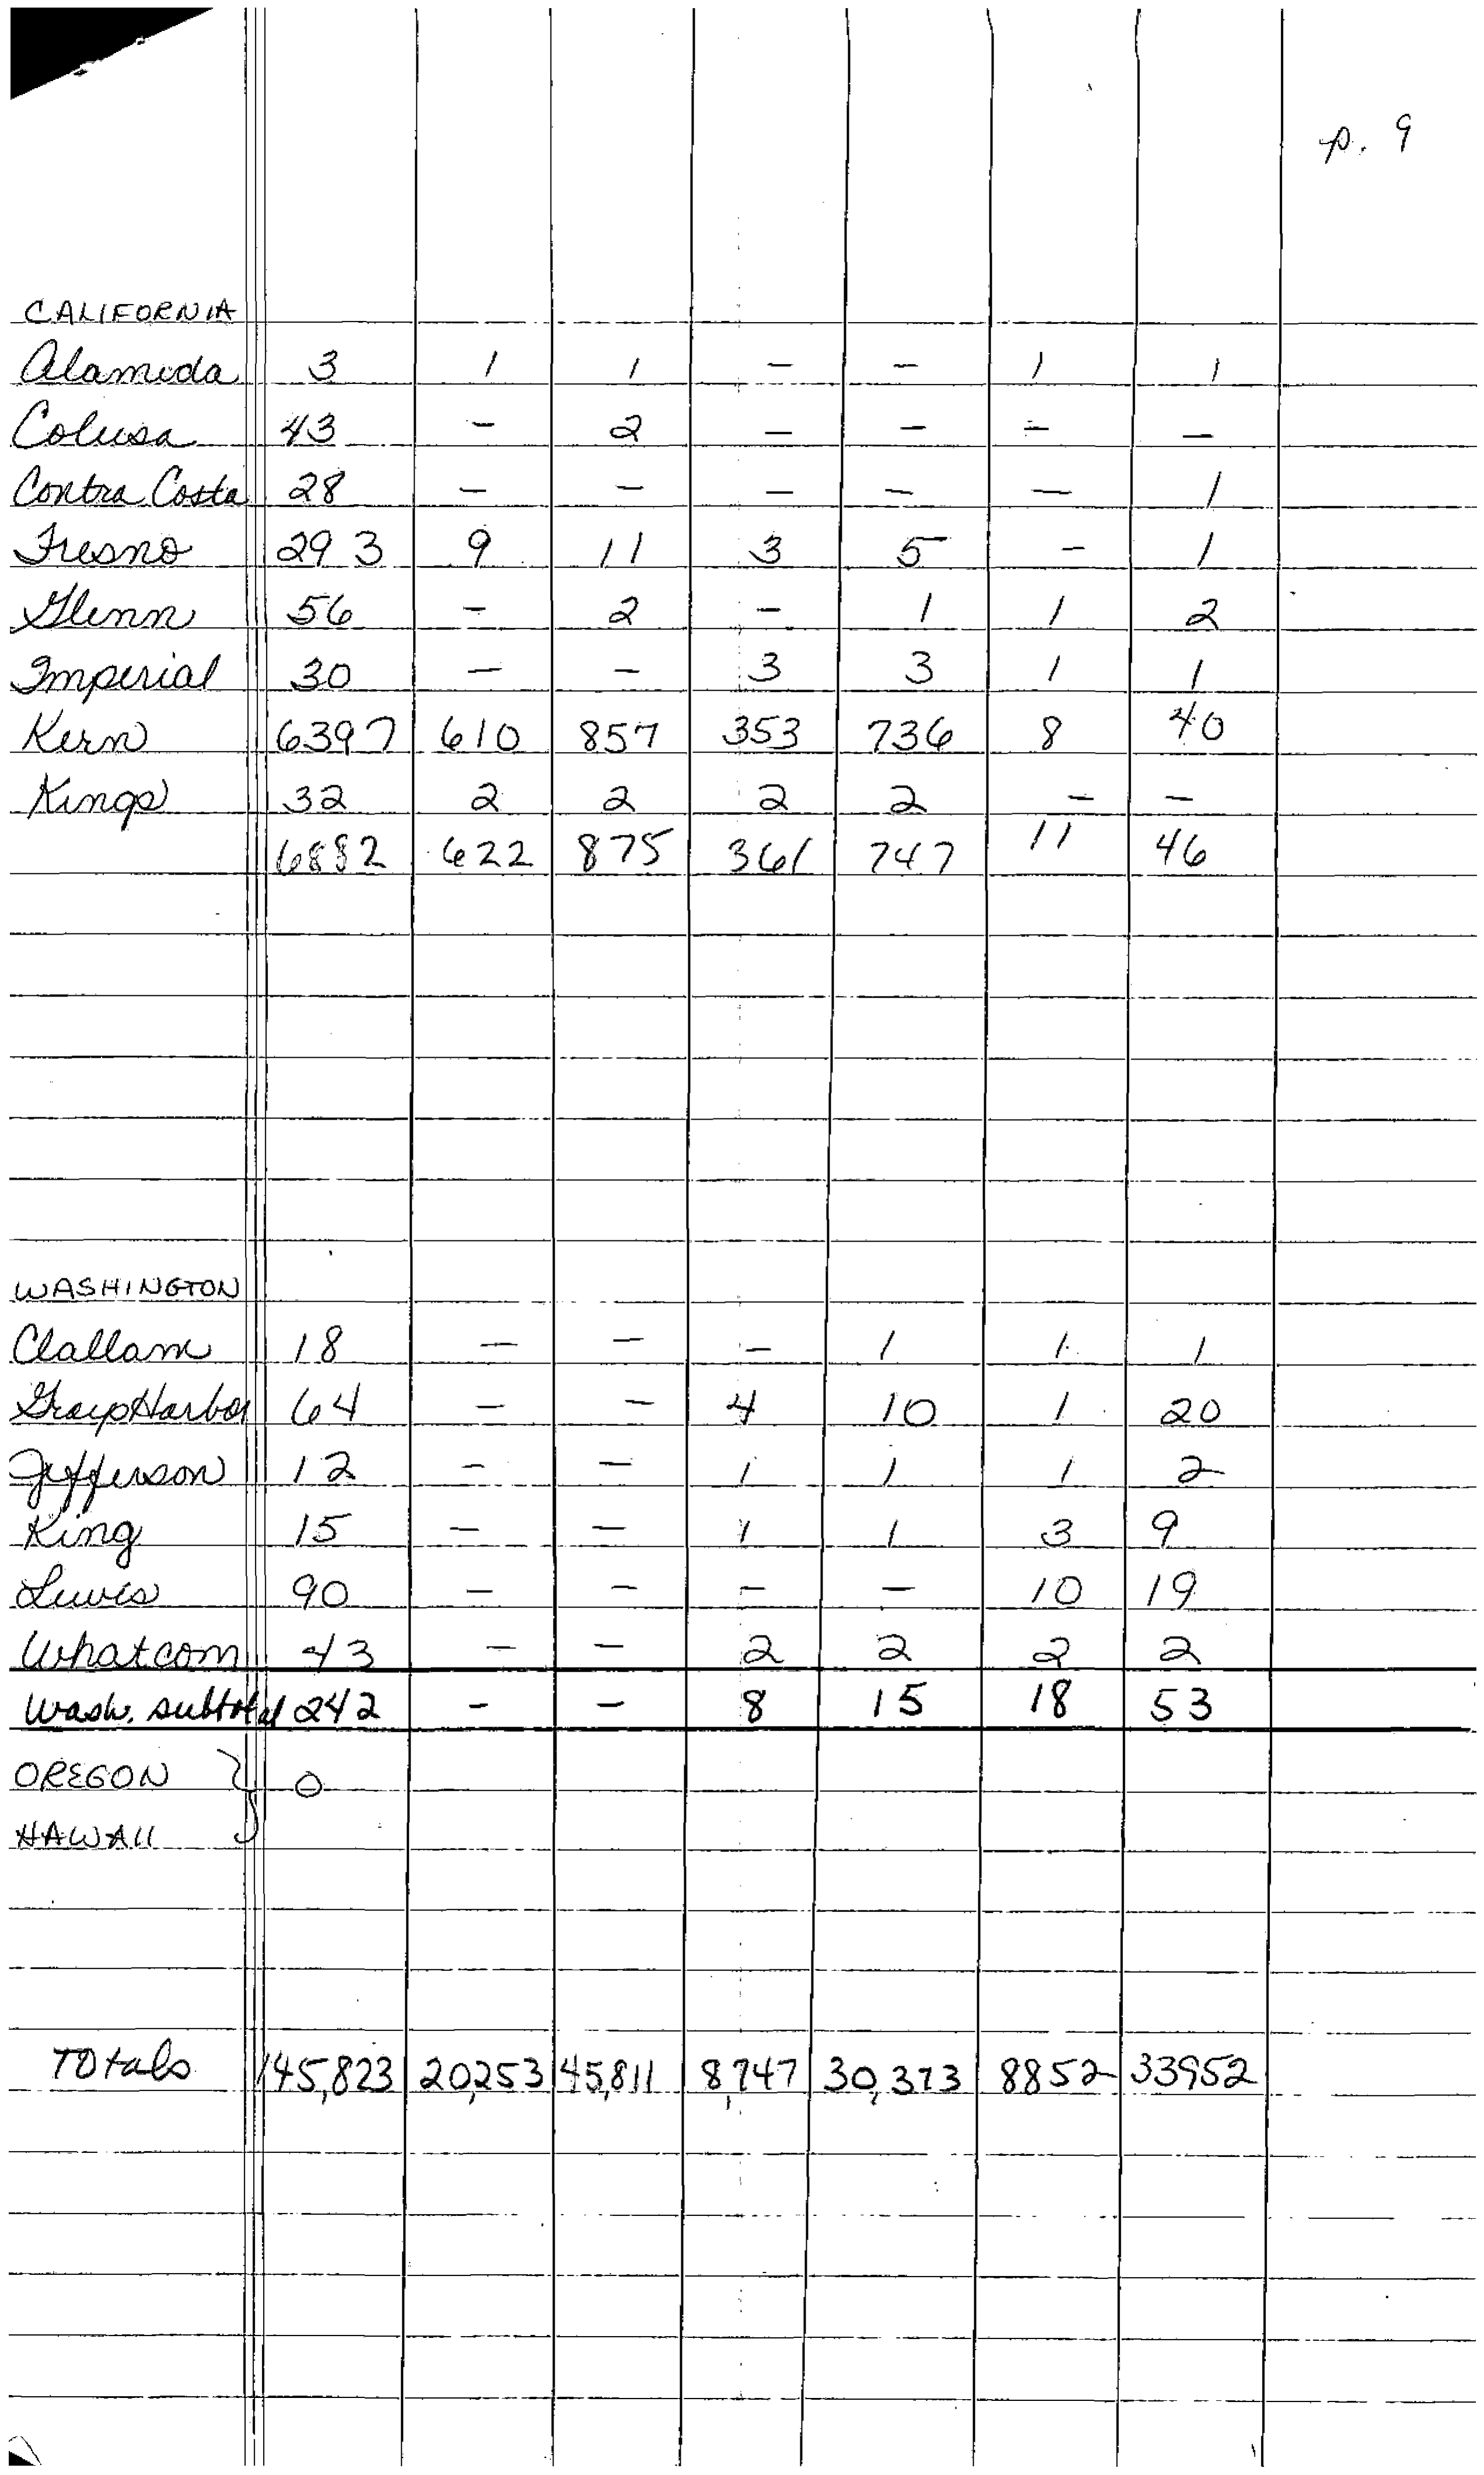 p. 9
CALIFORNIA
Alameda 3 1 1 - - 1 1
Colusa 43 - 2 - - - -
Contra Costa 28 - - - - - 1
Fresno 293 9 11 3 5 - 1
Glenn 56 - 2 - 1 1 2
Imperial 30 - - 3 3 1 1
Kern 6397 610 857 353 736 8 40
Kings 32 2 2 2 2 - -
6882 622 875 361 747 11 46
WASHINGTON
Clallam 18 - - - 1 1 1
Grays Harbor 64 - - 4 10 1 20
Jefferson 12 - - 1 1 1 2
King 15 - - 1 1 3 9
Lewis 90 - - - - 10 19
Whatcom 43 - - 2 2 2 2
Wash. subtotal 242 - - 8 15 18 53
OREGON } 0
HAWAII
TOtals 145,823 20,253 45,811 8,747 30,373 8852 33952